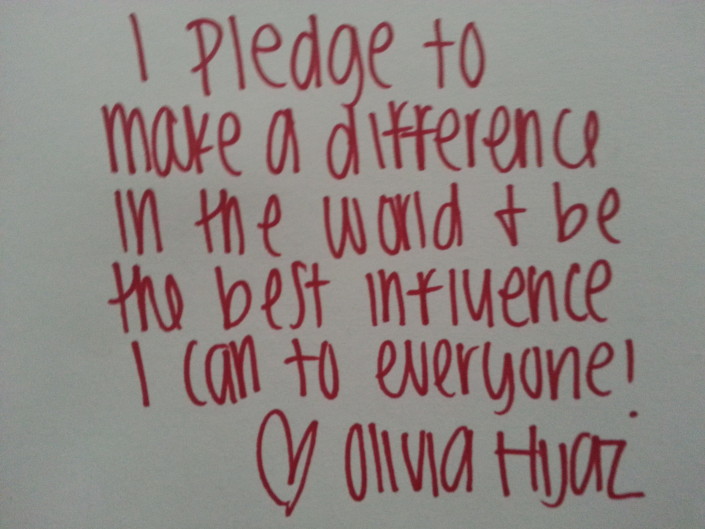 I Pledge to
make a difference
in the world + be
the best influence
I can to everyone!
♡ Olivia Hijaz